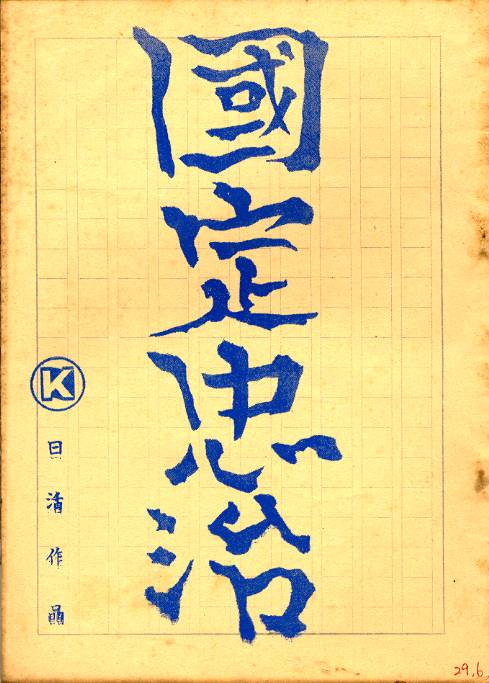 國定忠治
K
日活作品
29.6